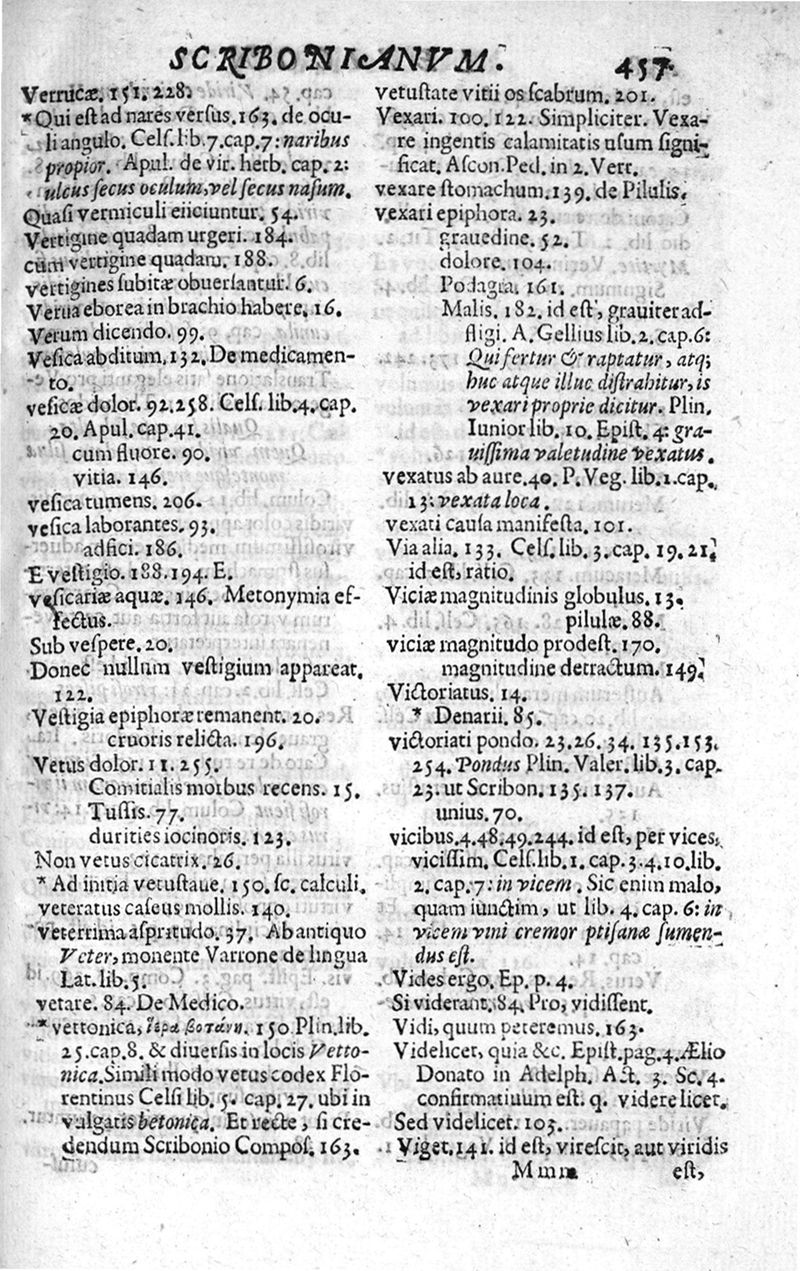 SCRIBONIANVM. 457
Verrucæ. 151. 228.
*Qui est ad nares versus. 163. de ocu-
li angulo. Cels. lib. 7. cap. 7: naribus
propior. Apul. de vir. herb. cap. 2:
ulcus secus oculum, vel secus nasum.
Quasi vermiculi eiiciuntur. 54.
Vertigine quadam urgeri. 184.
cum vertigine quadam. 188.
vertigines subitæ obuersantur. 6.
Verua eborea in brachio habere. 16.
Verum dicendo. 99.
Vesica abditum. 132. De medicamen-
to.
vesicæ dolor. 92. 258. Cels. lib. 4. cap.
20. Apul. cap. 41.
cum fluore. 90.
vitia. 146.
vesica tumens. 206.
vesica laborantes. 93.
adfici. 186.
E vestigio. 188. 194. E.
vesicariæ aquæ. 146. Metonymia ef-
fectus.
Sub vespere. 20.
Donec nullum vestigium appareat.
122.
Vestigia epiphoræ remanent. 20.
cruoris relicta. 196.
Vetus dolor. 11. 255.
Comitialis morbus recens. 15.
Tussis. 77.
durities iocinoris. 123.
Non vetus cicatrix. 26.
* Ad initia vetustatie. 150. sc. calculi.
veteratus caseus mollis. 140.
*veterrima aspritudo. 37. Ab antiquo
Veter, monente Varrone de lingua
Lat. lib. 5.
vetare. 84. De Medico.
* vettonica, ἱερα βοτάνη. 150 Plin. lib.
25. cap. 8. & diuersis in locis Vetto-
nica. Simili modo vetus codex Flo-
rentinus Celsi lib. 5. cap. 27. ubi in
vulgatis betonica. Et recte, si cre-
dendum Scribonio Compos. 163.
vetustate vitii os scabrum. 201.
Vexari. 100. 122. Simpliciter. Vexa-
re ingentis calamitatis usum signi-
ficat. Ascon. Ped. in 2. Verr.
vexare stomachum. 139. de Pilulis.
vexari epiphora. 23.
grauedine. 52.
dolore. 104.
Podagra. 161.
Malis. 182. id est, grauiter ad-
fligi. A. Gellius lib. 2. cap. 6:
Qui fertur & raptatur, atq;
huc atque illuc distrahitur, is
vexari proprie dicitur. Plin.
Iunior lib. 10. Epist. 4: gra-
uissima valetudine vexatus.
vexatus ab aure. 40. P. Veg. lib. 1. cap.
13: vexata loca.
vexati causa manifesta. 101.
Via alia. 133. Cels. lib. 3. cap. 19. 21.
id est, ratio.
Viciæ magnitudinis globulus. 13.
pilulæ. 88.
viciæ magnitudo prodest. 170.
magnitudine detractum. 149.
Victoriatus. 14.
* Denarii. 85.
victoriati pondo. 23. 26. 34. 135. 153.
254. Pondus Plin. Valer. lib. 3. cap.
23. ut Scribon. 135. 137.
unius. 70.
vicibus. 4. 48. 49. 244. id est, per vices,
vicissim. Cels. lib. 1. cap. 3. 4. 10. lib.
2. cap. 7: in vicem. Sic enim malo,
quam iunctim, ut lib. 4. cap. 6: in
vicem vini cremor ptisanæ sumen-
dus est.
Vides ergo. Ep. p. 4.
Si viderant. 84. Pro, vidissent.
Vidi, quum peteremus. 163.
Videlicet, quia &c. Epist. pag. 4. Ælio
Donato in Adelph. Act. 3. Sc. 4.
confirmatiuum est. q. videre licet.
Sed videlicet. 103.
Viget. 141. id est, virescit, aut viridis
Mmm est,